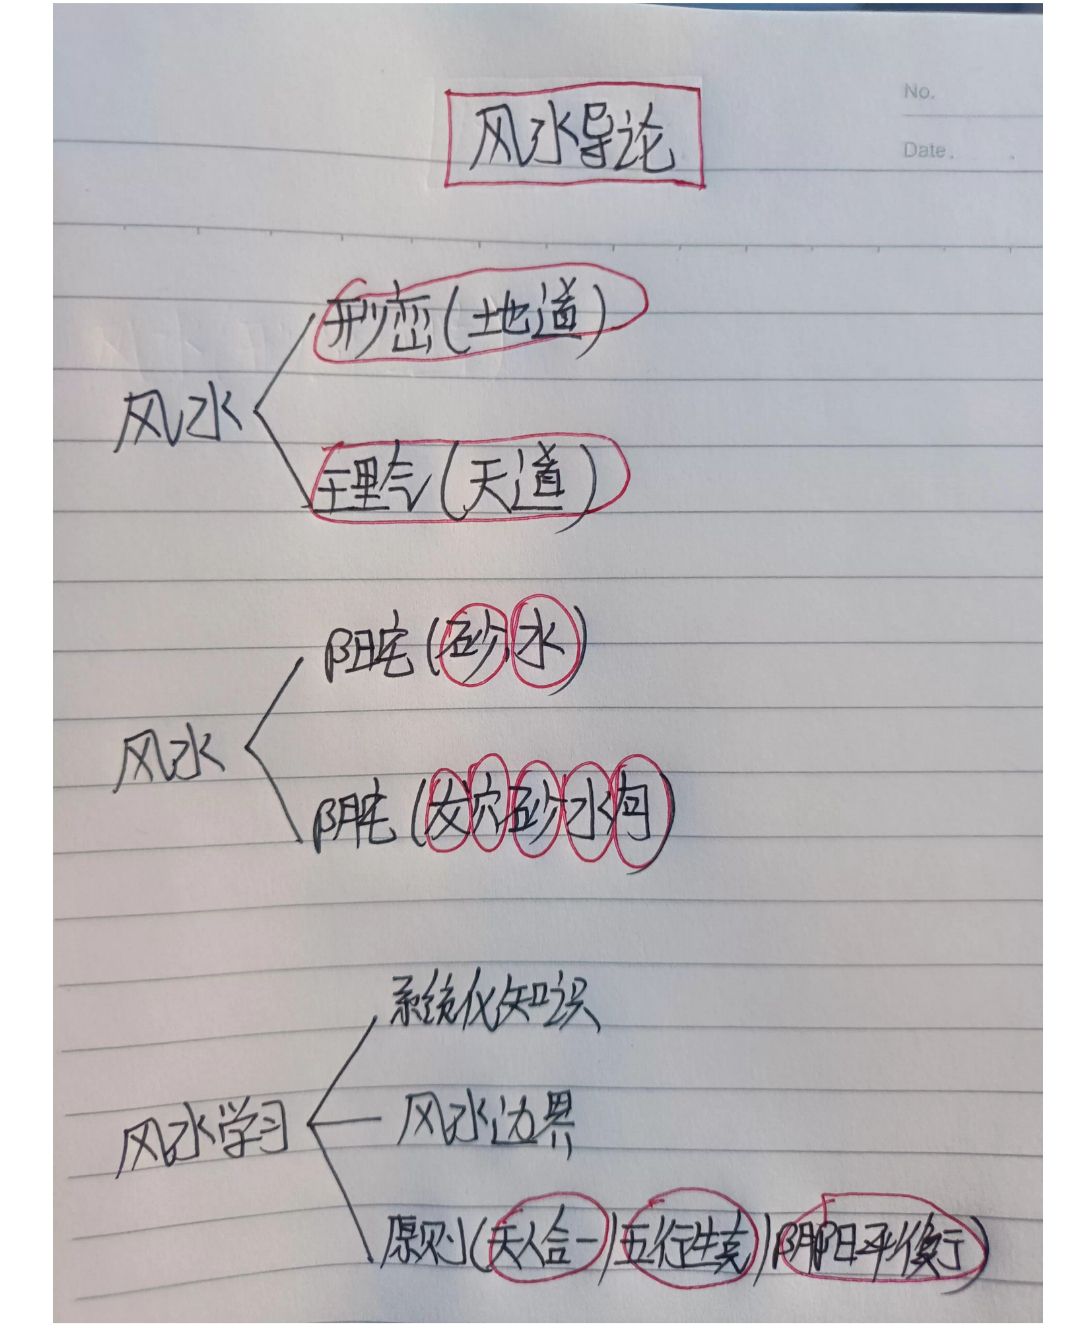 No.
Date.
风水导论
风水
形峦(地道)
理气(天道)
风水
阳宅(砂水)
阴宅(龙穴砂水向)
风水学习
系统化知识
风水边界
原则(天人合一|五行生克|阴阳平衡)